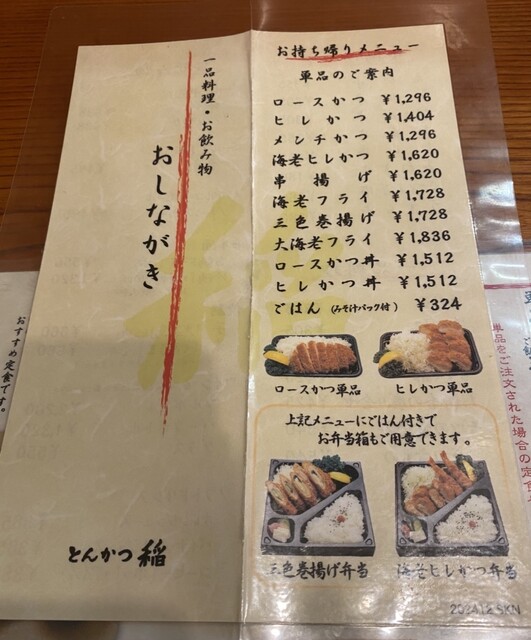 一品料理・お飲み物
おしながき
とんかつ 稲
お持ち帰りメニュー
単品のご案内
ロースかつ ￥1,296
ヒレかつ ￥1,404
メンチかつ ￥1,296
海老ヒレかつ ￥1,620
串揚げ ￥1,620
海老フライ ￥1,728
三色巻揚げ ￥1,728
大海老フライ ￥1,836
ロースかつ丼 ￥1,512
ヒレかつ丼 ￥1,512
ごはん (みそ汁パック付) ￥324
ロースかつ単品
ヒレかつ単品
上記メニューにごはん付きで
お弁当箱もご用意できます。
三色巻揚げ弁当
海老ヒレかつ弁当
おすすめ定食です。
単品をご注文された場合の定食